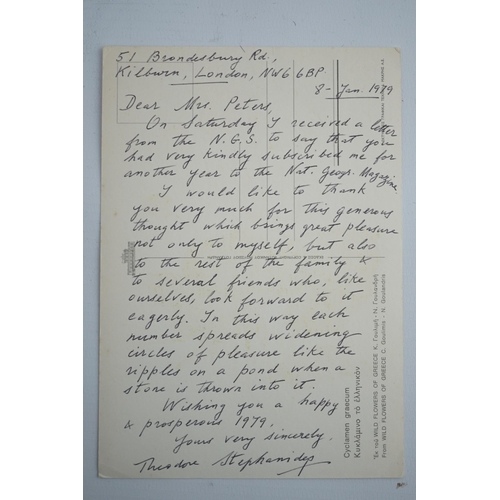 51 Brondesbury Rd.,
Kilburn, London, NW6 6BP
8- Jan. 1979
Dear Mrs. Peters,
On Saturday I received a letter
from the N.G.S. to say that you
had very kindly subscribed me for
another year to the Nat. Geogr. Magazine
I would like to thank
you very much for this generous
thought which brings great pleasure
not only to myself, but also
to the rest of the family &
to several friends who, like
ourselves, look forward to it
eagerly. In this way each
number spreads widening
circles of pleasure like the
ripples on a pond when a
stone is thrown into it.
Wishing you a happy
& prosperous 1979.
Yours very sincerely.
Theodore Stephanides
Cyclamen graecum
Κυκλάμινο τὸ ἑλληνικόν
Ἐκ τοῦ WILD FLOWERS OF GREECE Κ. Γουλιμῆ - Ν. Γουλανδρῆ
From WILD FLOWERS OF GREECE C. Goulimis - N. Goulandris